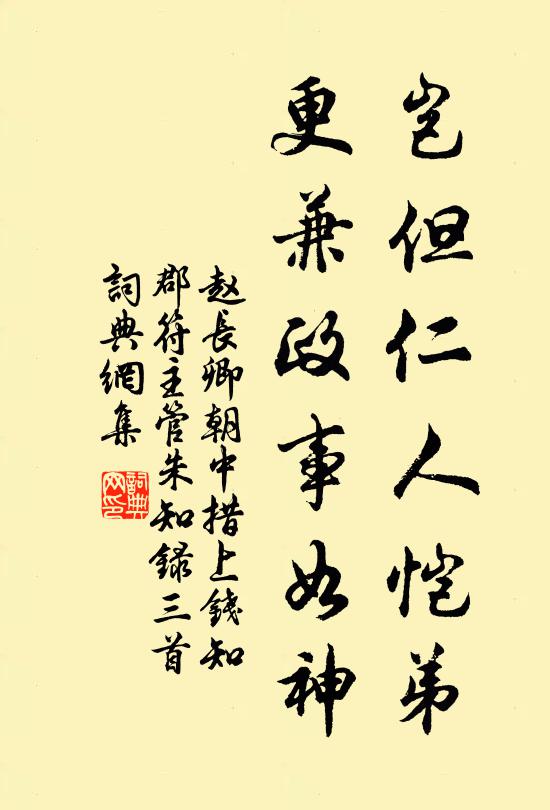 岂但仁人恺弟
更兼政事如神
赵長卿朝中措上錢知
郡符主管朱知録三首
詞典網集
詞典网印